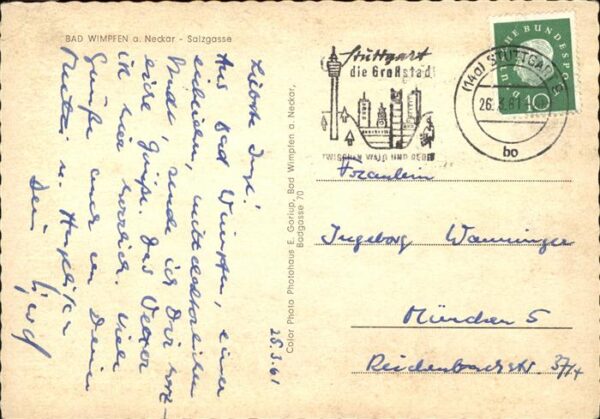 BAD WIMPFEN a. Neckar - Salzgasse
Liebste Inge!
Aus Bad Wimpfen, einer
reizenden, mittelalterlichen
Stadt, sende ich Dir
Grüße. Das Wetter
ist hier herrlich. Viele
Grüße auch an Deine
Mutter u. Angelika
Dein
25.3.61
Color Photo Photohaus E. Goriup, Bad Wimpfen a. Neckar,
Badgasse 70
Stuttgart
die Großstadt
ZWISCHEN WALD UND REBEN
(14a) STUTTGART 9
26.3.61
bo
DEUTSCHE BUNDESPOST
10
Fräulein
Ingeborg Wanninger
München 5
Reichenbachstr. 37/4